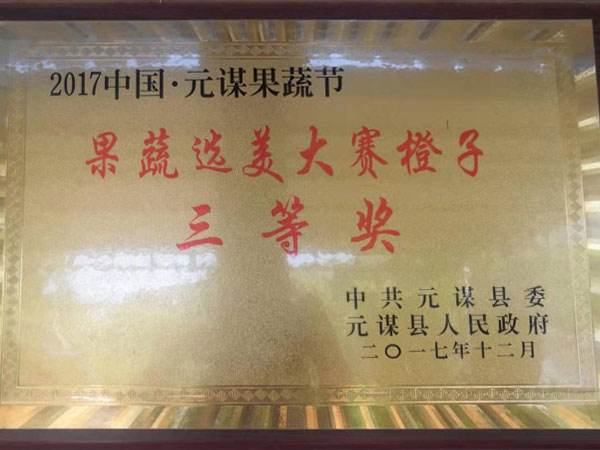 2017中国·元谋果蔬节
果蔬选美大赛橙子
三等奖
中共元谋县委
元谋县人民政府
二〇一七年十二月